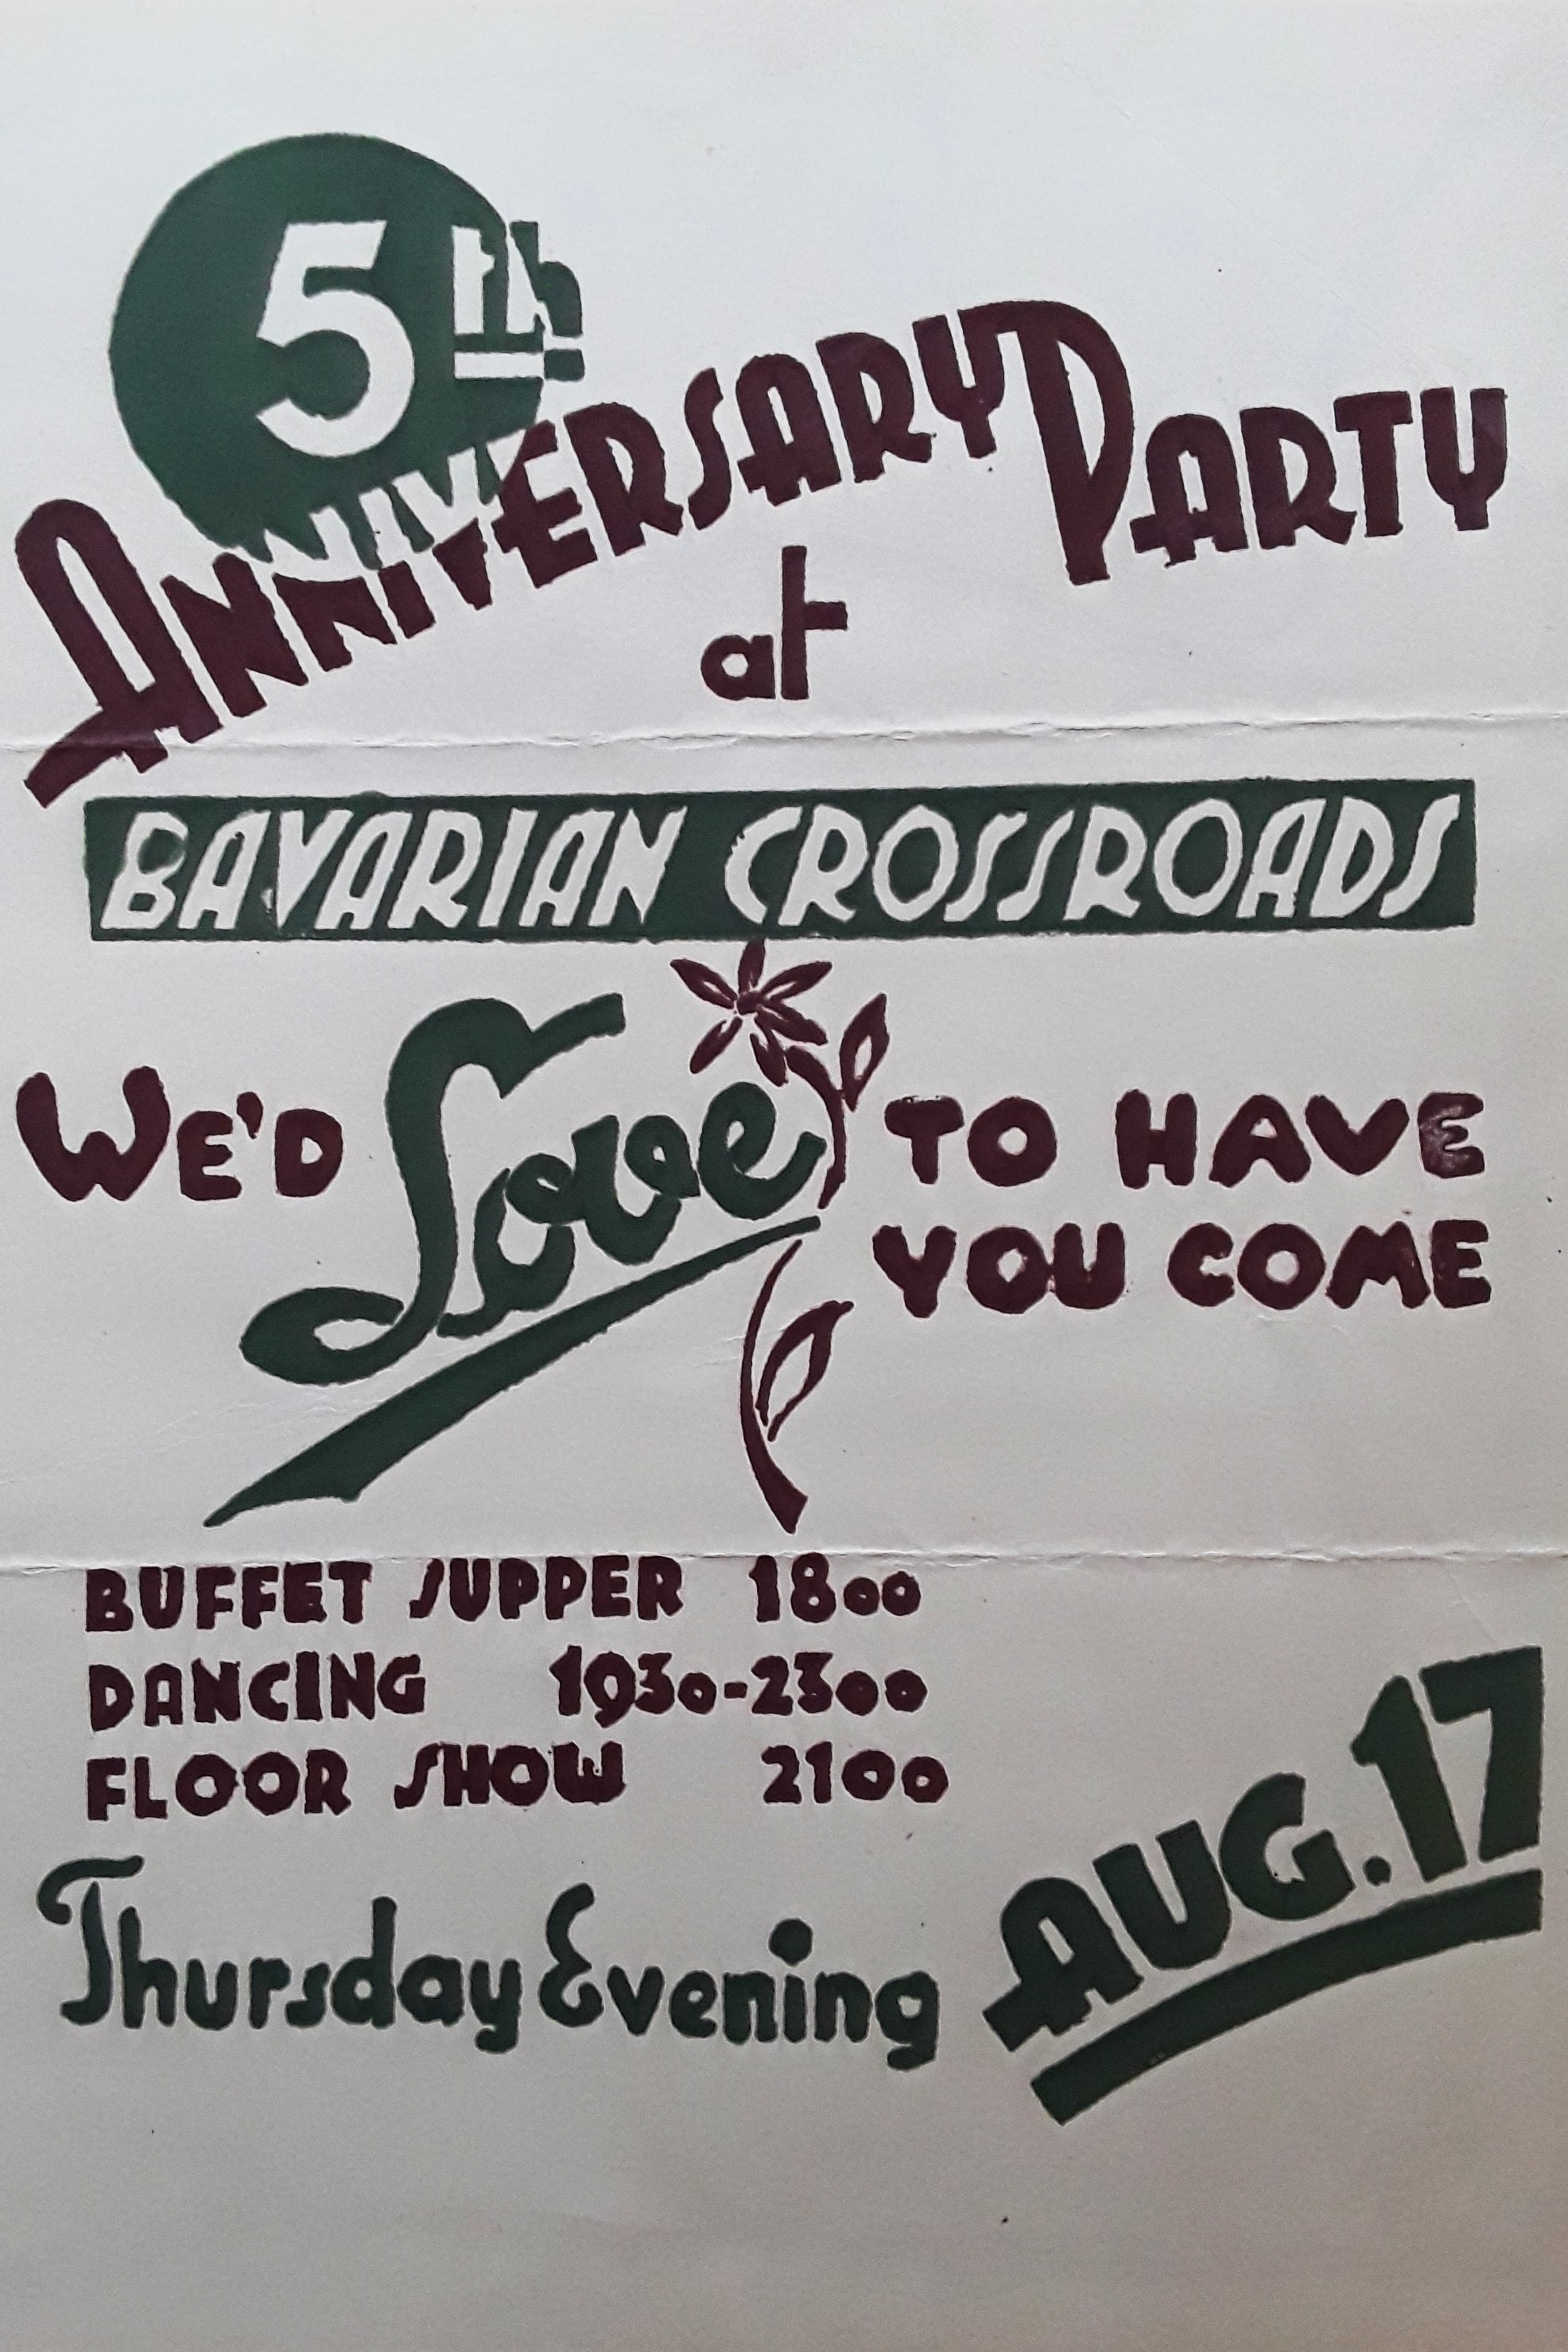 5th
ANNIVERSARY PARTY
at
BAVARIAN CROSSROADS
WE'D Love TO HAVE
YOU COME
BUFFET SUPPER 1800
DANCING 1930-2300
FLOOR SHOW 2100
Thursday Evening AUG. 17